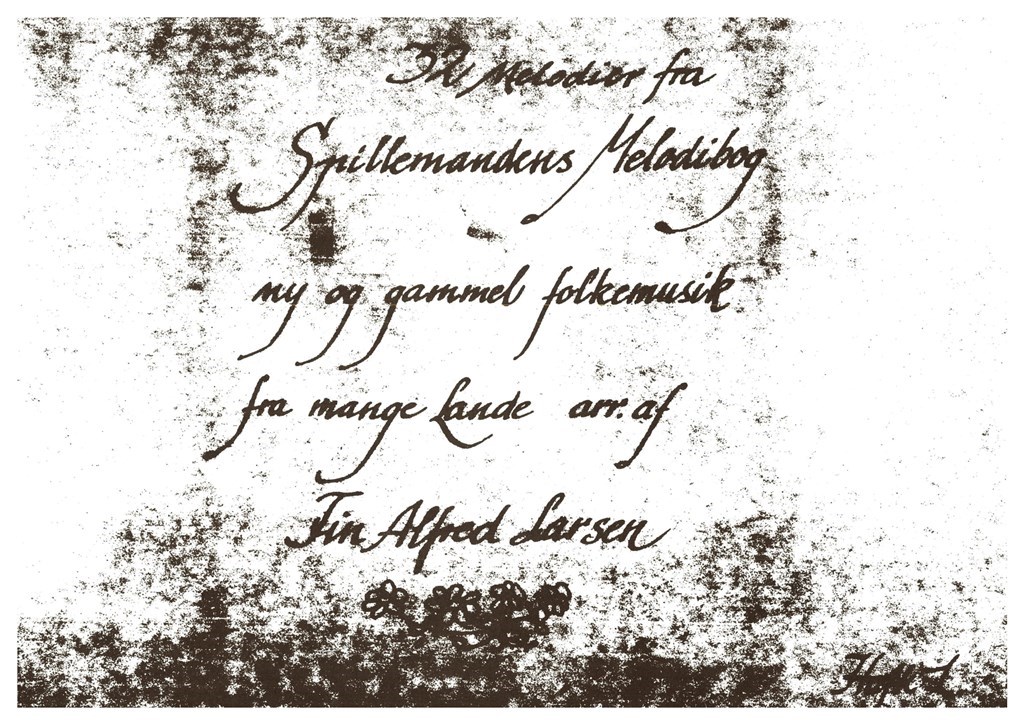 32 Melodier fra
Spillemandens Melodibog
ny og gammel folkemusik
fra mange Lande arr. af
Fin Alfred Larsen